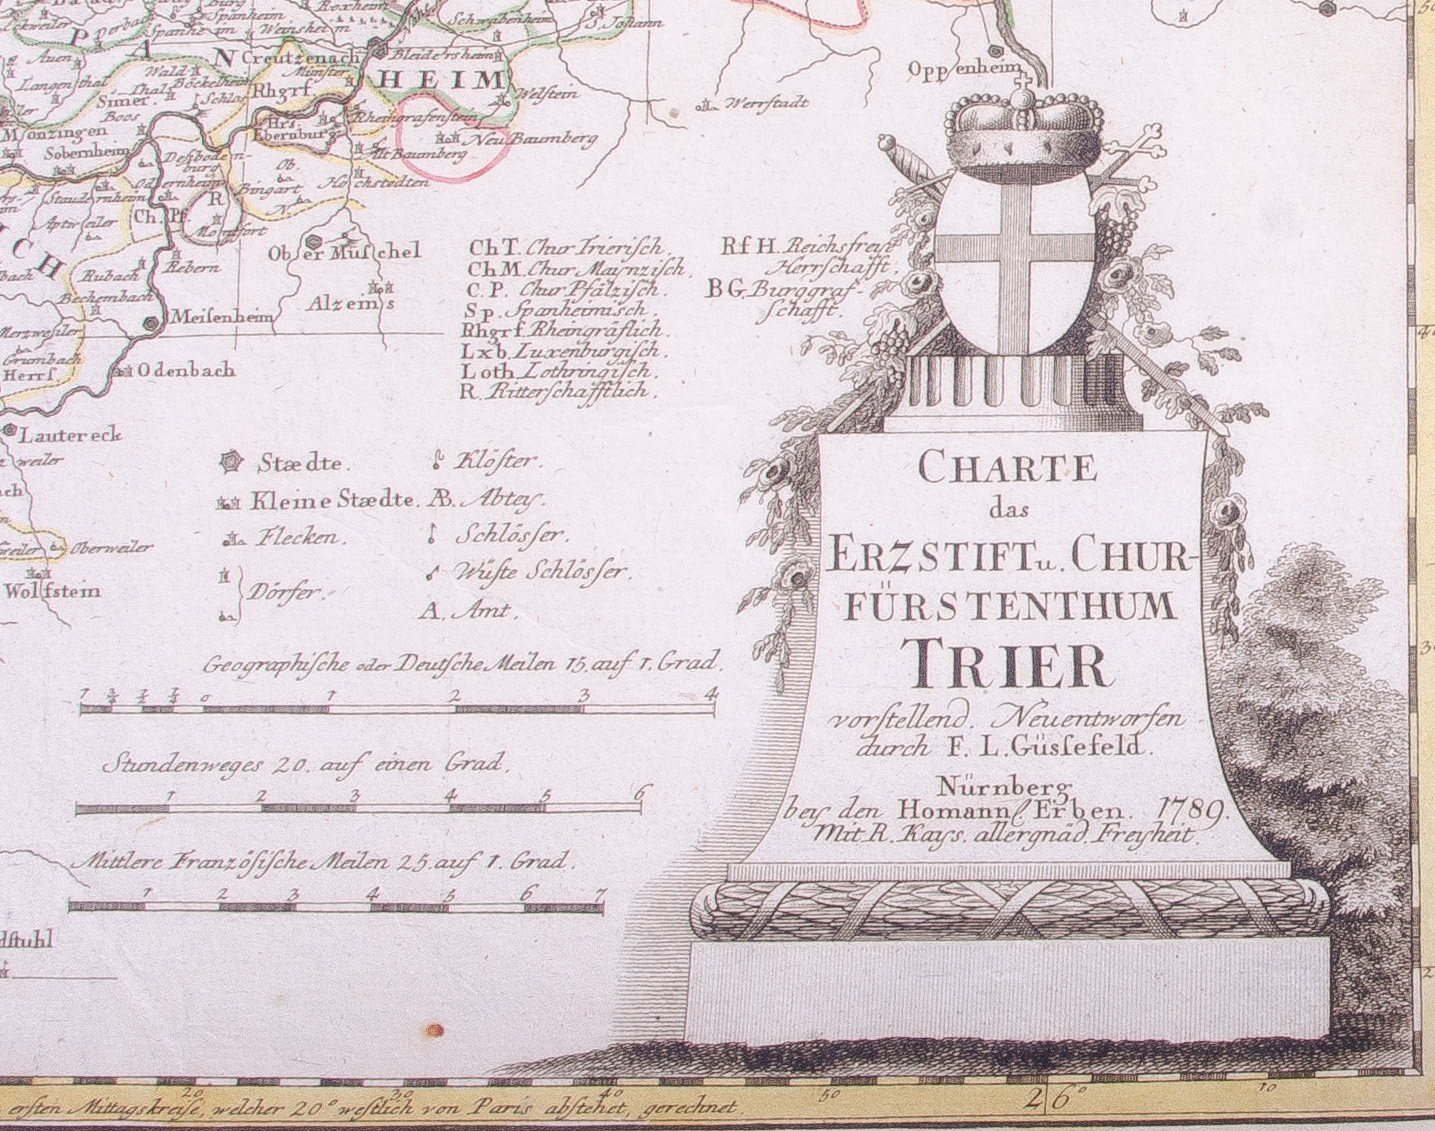 Spanheim
Weinsheim
Roxheim
Schwabenheim
S. Johann
P A N
Auen
Wald
Böckelheim
Creutzenach
Bleidersheim
Münster
HEIM
Langenthal
Thal
Schlos
Rhgrf
Welstein
Simer.
Boos
Hrs.
Ebernburg
Rheingrafenstein
Werrstadt
Oppenheim
Monzingen
Sobernheim
Alt Baumberg
Neu Baumberg
Odernheim
Ob.
Bingart
N.
Hochstedten
Staudernheim
R
Ch. Pf.
Montfort
Rebern
ICH
Rubach
Bechembach
Ober Muſchel
Alzeims
Meiſenheim
Merzweiler
Grumbach
Herrſ
Odenbach
Lautereck
weiler
Oberweiler
Wolfstein
dſtuhl
ChT. Chur Trieriſch.
ChM. Chur Maynziſch.
C. P. Chur Pfälziſch.
Sp. Spanheimiſch.
Rhgrf Rheingräflich.
Lxb. Luxenburgiſch.
Loth. Lothringiſch.
R. Ritterſchafftlich.
RfH. Reichsfreye
Herrſchafft.
BG. Burggraf-
ſchafft.
Stædte.
Kleine Stædte.
Flecken.
Dörfer.
Klöſter.
Æ. Abtey.
Schlöſſer.
Wüſte Schlöſſer.
A. Amt.
Geographiſche oder Deutſche Meilen 15. auf 1. Grad.
1 ¾ ½ ¼ 0 1 2 3 4
Stundenweges 20. auf einen Grad.
1 2 3 4 5 6
Mittlere Französiſche Meilen 25. auf 1. Grad.
1 2 3 4 5 6 7
CHARTE
das
ERZSTIFT u. CHUR-
FÜRSTENTHUM
TRIER
vorſtellend. Neuentworfen
durch F. L. Güsſefeld.
Nürnberg
bey den Homann. Erben. 1789.
Mit R. Kays. allergnäd. Freyheit.
20 30 40 50 26° 10
erſten Mittagskreiſe, welcher 20° weſtlich von Paris abſtehet, gerechnet.